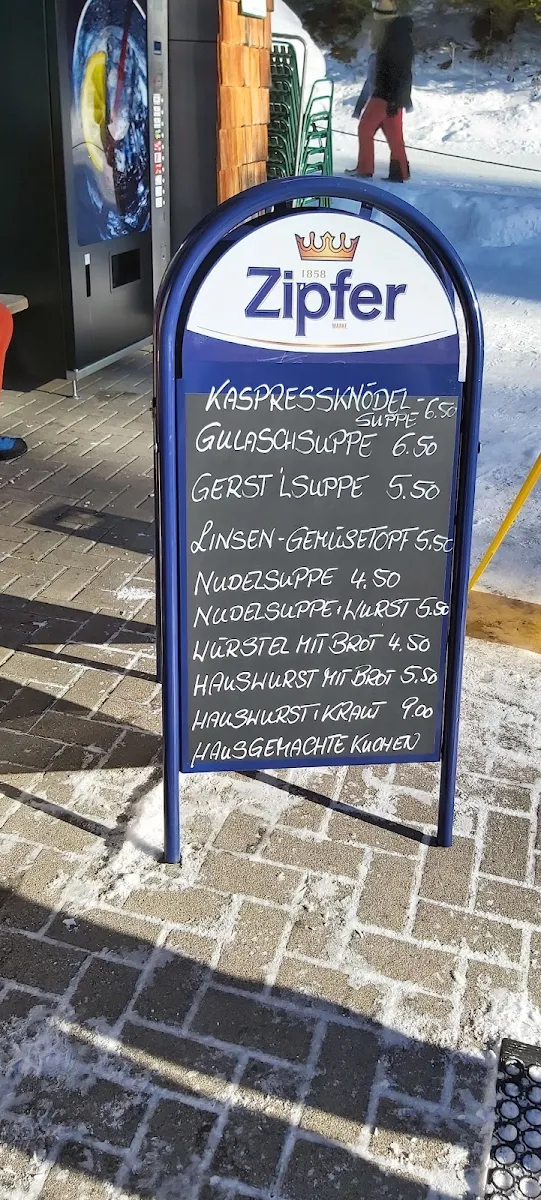 1858
Zipfer
MARKE
KASPRESSKNÖDEL-
SUPPE 6.50
GULASCHSUPPE 6.50
GERST'LSUPPE 5.50
LINSEN-GEMÜSETOPF 5.50
NUDELSUPPE 4.50
NUDELSUPPE, WURST 5.50
WÜRSTEL MIT BROT 4.50
HAUSWURST MIT BROT 5.50
HAUSWURST, KRAUT 9.00
HAUSGEMACHTE KUCHEN